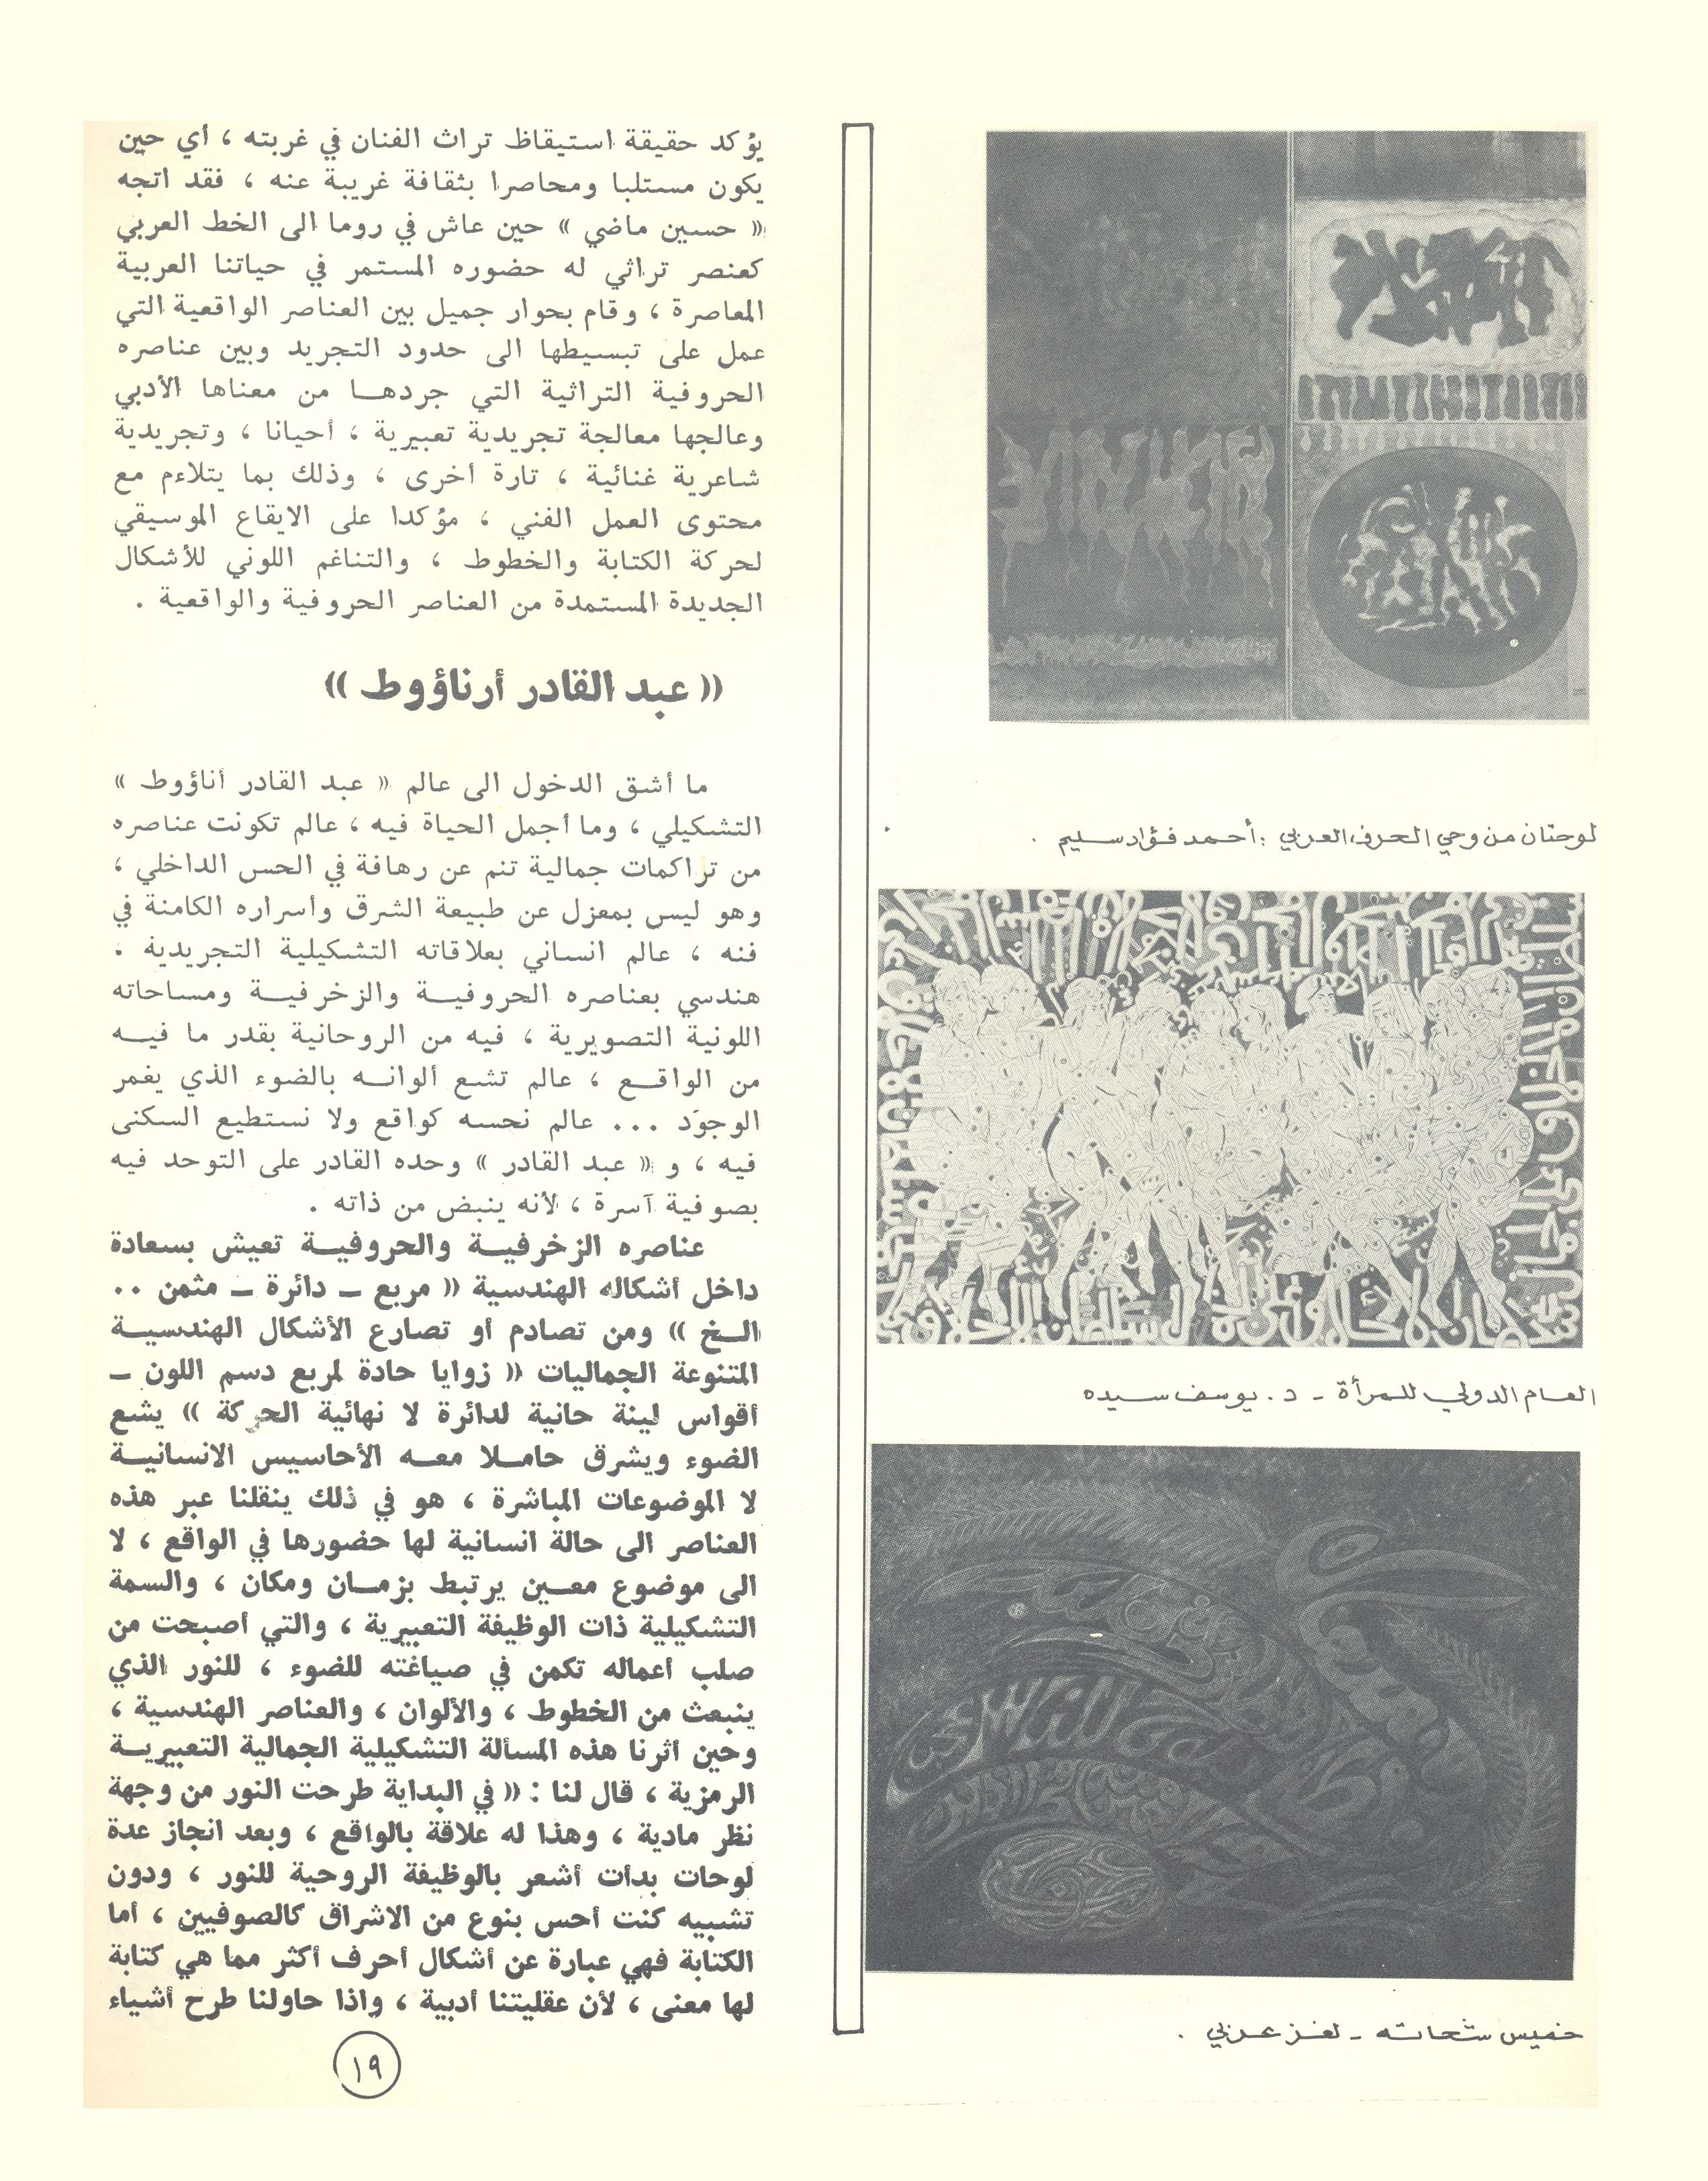 لوحتان من وحي الحرف العربي : أحمد فؤاد سليم .
العام الدولي للمرأة - د. يوسف سيده
خميس شحاته - لغز عربي .
يؤكد حقيقة استيقاظ تراث الفنان في غربته ، أي حين
يكون مستلبا ومحاصرا بثقافة غريبة عنه ، فقد اتجه
« حسين ماضي » حين عاش في روما الى الخط العربي
كعنصر تراثي له حضوره المستمر في حياتنا العربية
المعاصرة ، وقام بحوار جميل بين العناصر الواقعية التي
عمل على تبسيطها الى حدود التجريد وبين عناصره
الحروفية التراثية التي جردهـا من معناها الأدبي
وعالجها معالجة تجريدية تعبيرية ، أحيانا ، وتجريدية
شاعرية غنائية ، تارة أخرى ، وذلك بما يتلاءم مع
محتوى العمل الفني ، مؤكدا على الايقاع الموسيقي
لحركة الكتابة والخطوط ، والتناغم اللوني للأشكال
الجديدة المستمدة من العناصر الحروفية والواقعية .
« عبد القادر أرناؤوط »
ما أشق الدخول الى عالم « عبد القادر أناؤوط »
التشكيلي ، وما أجمل الحياة فيه ، عالم تكونت عناصره
من تراكمات جمالية تنم عن رهافة في الحس الداخلي ،
وهو ليس بمعزل عن طبيعة الشرق وأسراره الكامنة في
فنه ، عالم انساني بعلاقاته التشكيلية التجريدية .
هندسي بعناصره الحروفيـة والزخرفيـة ومساحاته
اللونية التصويرية ، فيه من الروحانية بقدر ما فيـه
من الواقـع ، عالم تشع ألوانـه بالضوء الذي يغمر
الوجود ... عالم نحسه كواقع ولا نستطيع السكنى
فيه ، و « عبد القادر » وحده القادر على التوحد فيه
بصوفية آسرة ، لأنه ينبض من ذاته .
عناصره الزخرفيـة والحروفيـة تعيش بسعادة
داخل أشكاله الهندسية « مربع ـ دائرة ـ مثمن ..
الـخ » ومن تصادم أو تصارع الأشكال الهندسيـة
المتنوعة الجماليات « زوايا حادة لمربع دسم اللون ـ
أقواس لينة حانية لدائرة لا نهائية الحركة » يشع
الضوء ويشرق حامـلا معـه الأحاسيس الانسانيـة
لا الموضوعات المباشرة ، هو في ذلك ينقلنا عبر هذه
العناصر الى حالة انسانية لها حضورها في الواقع ، لا
الى موضوع معـين يرتبط بزمـان ومكان ، والسمة
التشكيلية ذات الوظيفة التعبيرية ، والتي أصبحت من
صلب أعماله تكمن في صياغته للضوء ، للنور الذي
ينبعث من الخطوط ، والألوان ، والعناصر الهندسية ،
وحين أثرنا هذه المسألة التشكيلية الجمالية التعبيريـة
الرمزية ، قال لنا : « في البداية طرحت النور من وجهة
نظر مادية ، وهذا له علاقة بالواقع ، وبعد انجاز عدة
لوحات بدأت أشعر بالوظيفة الروحية للنور ، ودون
تشبيه كنت أحس بنوع من الاشراق كالصوفيين ، أما
الكتابة فهي عبارة عن أشكال أحرف أكثر مما هي كتابة
لها معنى ، لأن عقليتنا أدبية ، واذا حاولنا طرح أشياء
١٩